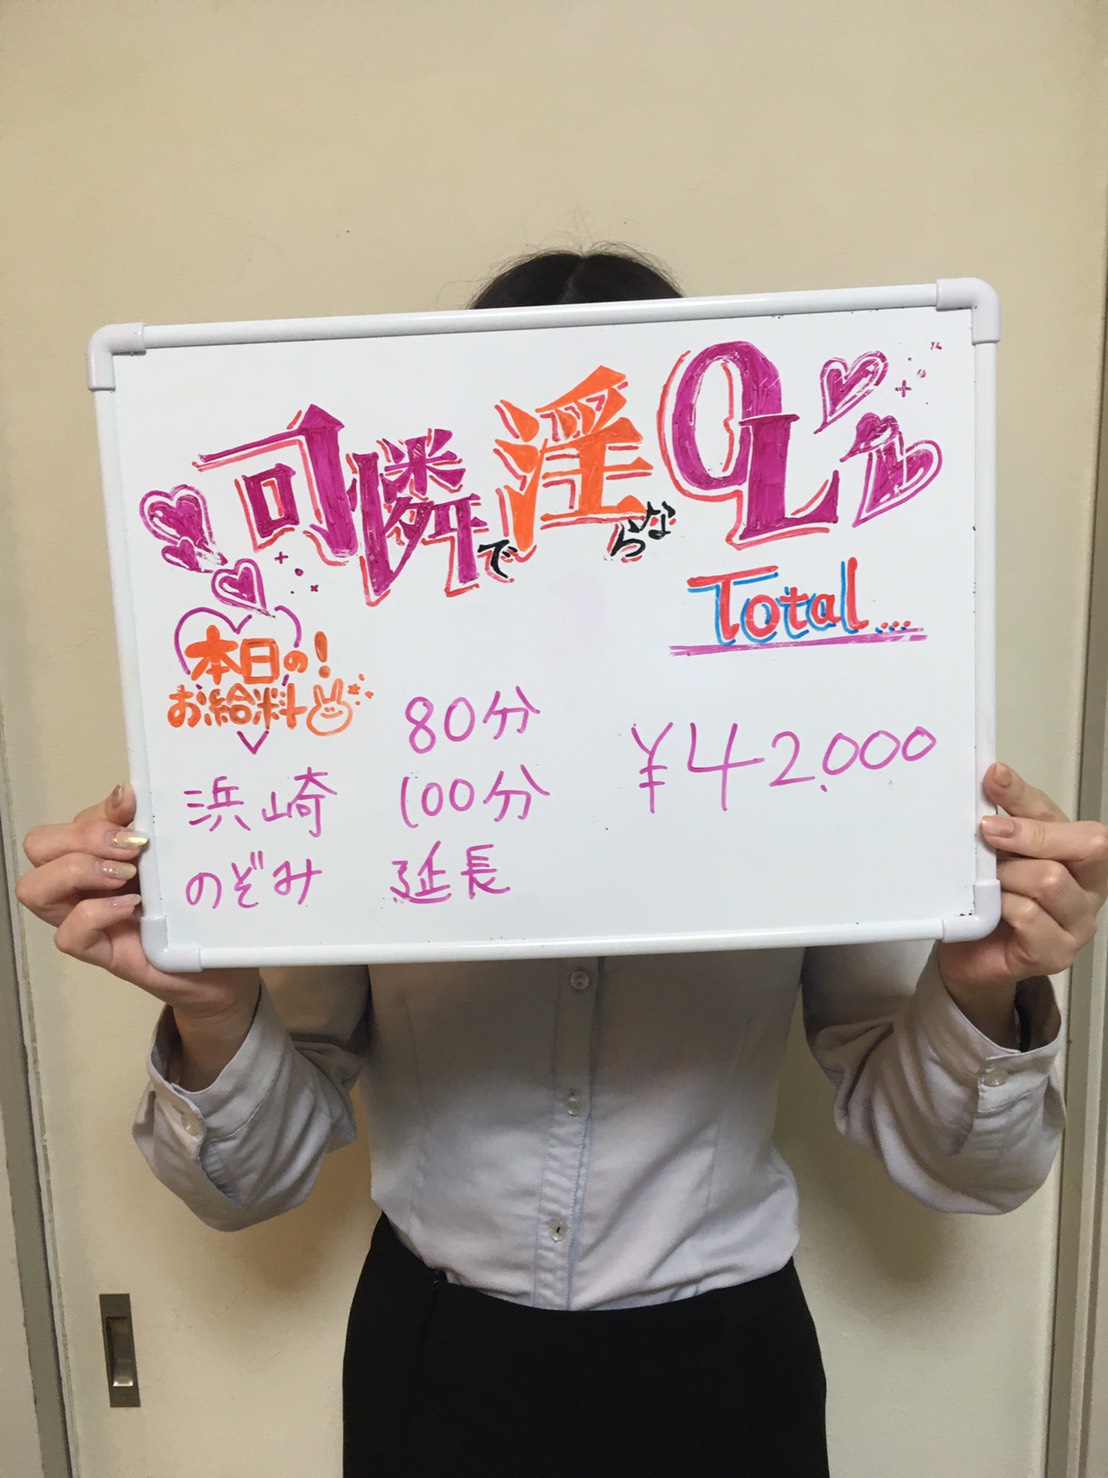 可憐で淫らなOL
Total...
本日の!
お給料
80分
浜崎 100分 ¥42,000
のぞみ 延長